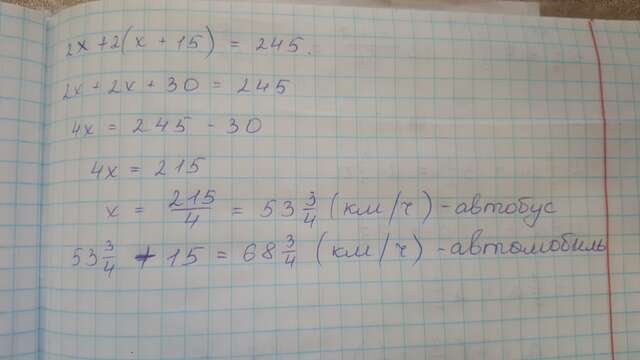 2x+2(x+15) = 245.
2x+2x+30 = 245
4x = 245 - 30
4x = 215
x = 215/4 = 53 3/4 (км/ч) - автобус
53 3/4 + 15 = 68 3/4 (км/ч) - автомобиль